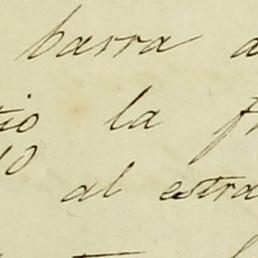 barra a
tio la f
10 al estra